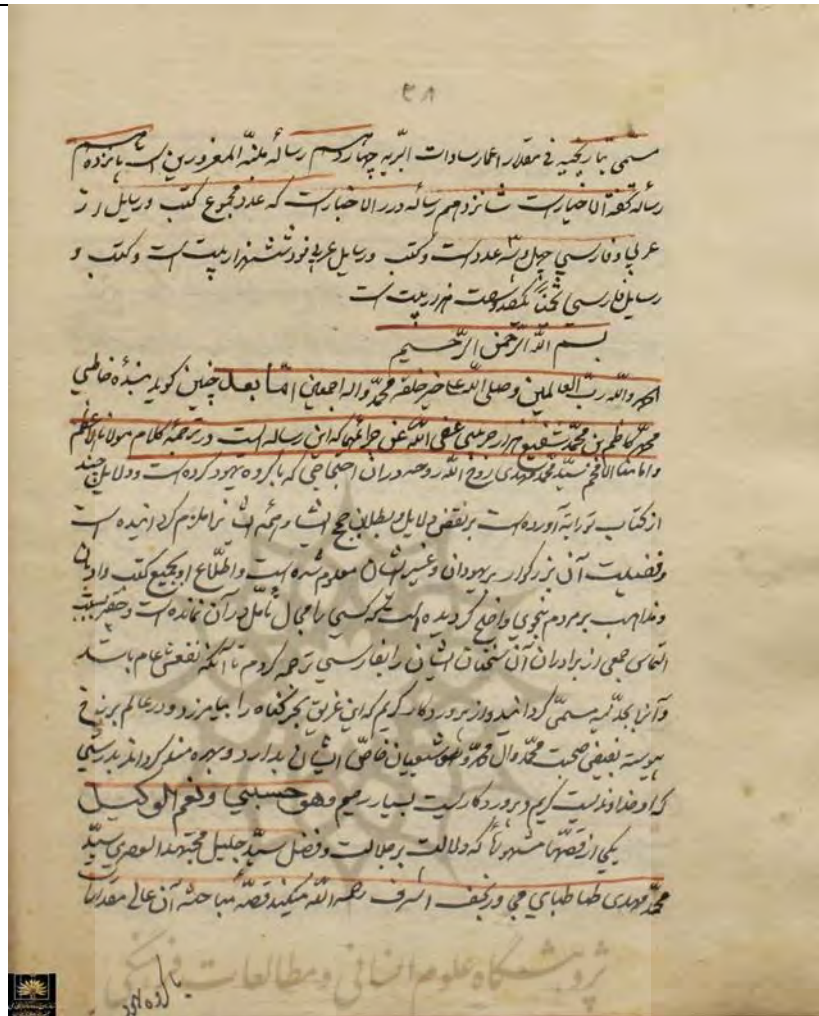 ۳۸
مسمی بتاریخیه فی مقدار اعمار سادات البریه چهاردهم رساله منبّه المغرورین است پانزدهم
رساله تحفة الاخیار است شانزدهم رساله درر الاخبار است که عدد مجموع کتب و رسایل از
عربی و فارسی چهل و سه عدد است و کتب و رسایل عربی نود شش هزار بیت است و کتب و
رسایل فارسی تخمیناً یکصد هزار بیت است
بسم الله الرّحمن الرّحیم
الحمد والله ربّ العالمین و صلی الله علی خیر خلقه محمّد و اله اجمعین امّا بعد چنین کوید بندۀ خاطی
محمّد کاظم بن محمّد شفیع هزار جریبی عفی الله عن جرائمها که این رساله است در ترجمۀ کلام مولانا الاعظم
و امامنا الافخم سیّد محمّد مهدی روح الله روحه در ان احتجاجی که با کروه یهود کرده است و دلایل چند
از کتاب توراة آورده است بر نقض دلایل و بطلان حجج ایشان و همه ایشانرا ملزم کردانیده است
و فضیلت آن بزرکوار بر یهودان و غیر ایشان معلوم شده است و اطّلاع او بجمیع کتب و ادیان
و مذاهب بر مردم بنحوی واضح کردیده است که کسی را مجال تأمّل در آن نمانده است و حقیر بسبب
التماس جمعی از برادران آن سخنان ایشان را بفارسی ترجمه کردم تا آنکه نفعش عام باشد
و آنرا بجدّیه مسمّی کردانید و از پروردکار کریم که این غریق بحر کناه را بیامرزد و در عالم برزخ
پیوسته بفیض صحبت محمّد وال محمّد و شیعیان خاصّ ایشان بدارد و بهره مند کرداند بدرستی
که او خداوندیست کریم و پروردکاریست بسیار رحیم و هو حسبی و نعم الوکیل
یکی از قصّهای مشهوره که دلالت بر جلالت و فضل سیّد جلیل مجتهد العصری سیّد
محمّد مهدی طباطبای مجاور نجف اشرف رحمه الله میکند قصّه مباحثه آن عالی مقدار با
پژوهشگاه علوم انسانی و مطالعات فرهنگی